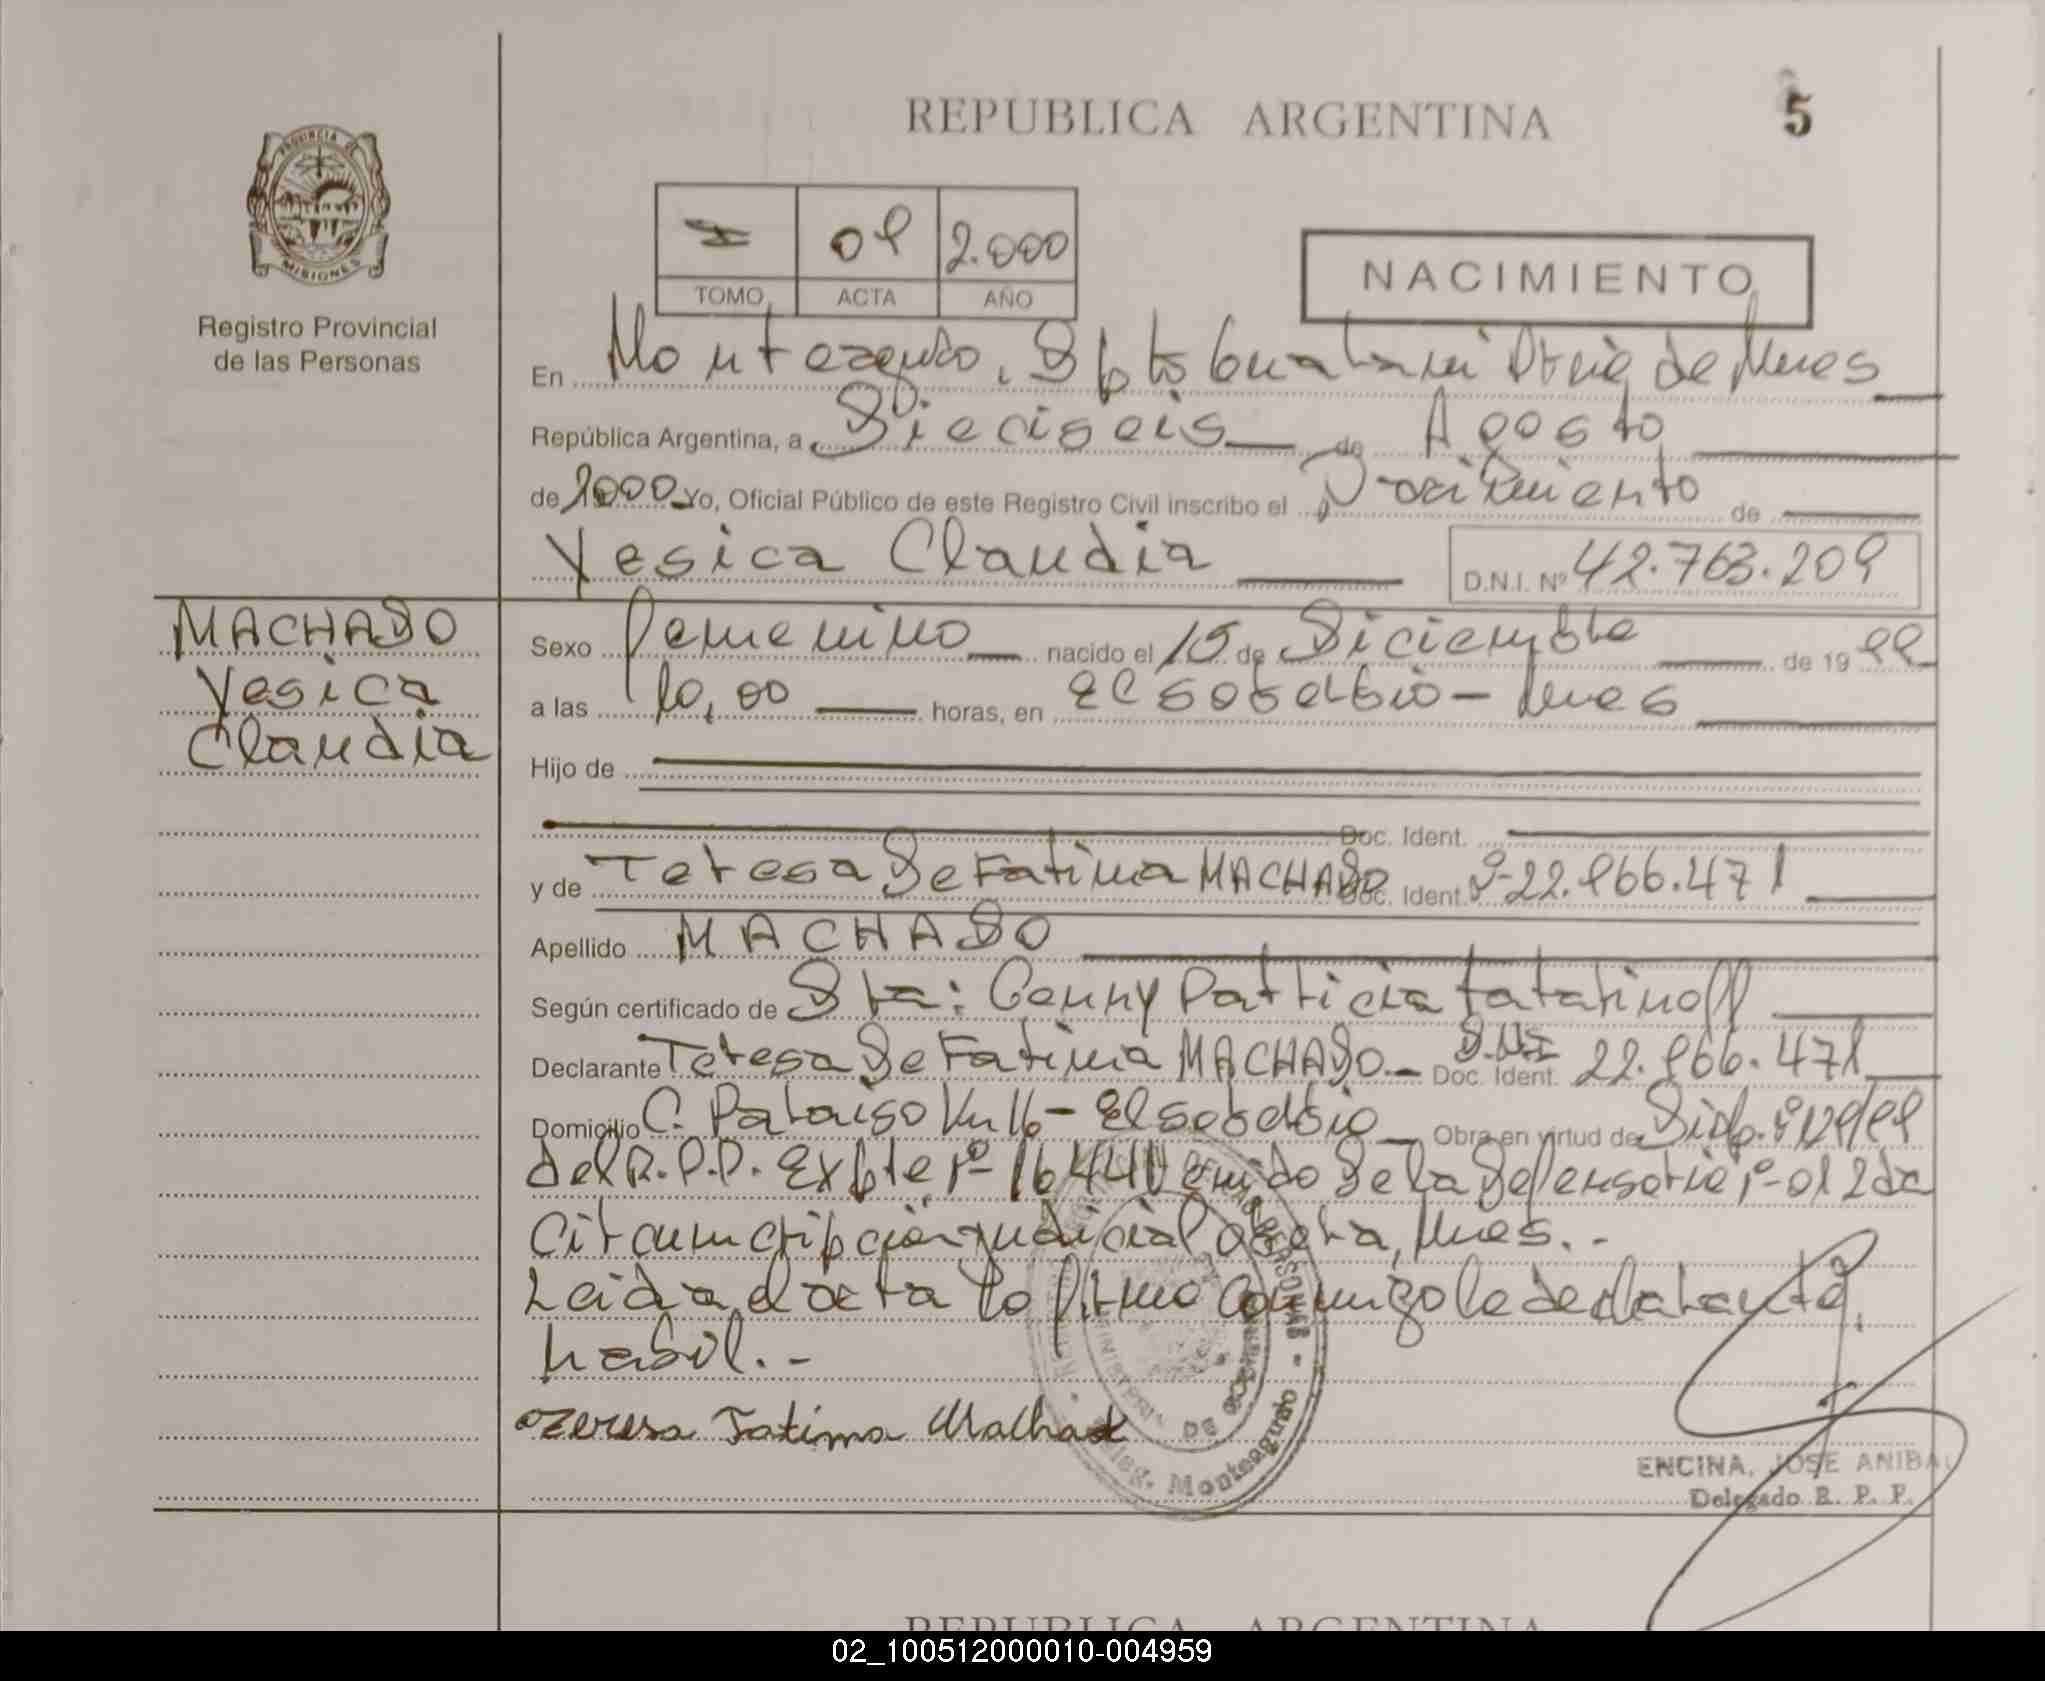 REPUBLICA ARGENTINA
5
PROVINCIA DE
MISIONES
Registro Provincial
de las Personas
I 09 2.000
TOMO ACTA AÑO
NACIMIENTO
En Monteagudo, Dpto Guarani Pcia de Mnes
República Argentina, a Dieciseis de Agosto
de 2000 Yo, Oficial Público de este Registro Civil inscribo el Nacimiento de
Yesica Claudia D.N.I. Nº 42.763.209
MACHADO
Yesica
Claudia
Sexo Femenino nacido el 15 de Diciembre de 19 99
a las 10,00 horas, en El Soberbio - Mnes
Hijo de
Doc. Ident.
y de Teresa De Fatima MACHADO Doc. Ident. 22.966.471
Apellido MACHADO
Según certificado de Sra: Genny Patricia Tatarinoff
Declarante Teresa De Fatima MACHADO.- D.N.I Doc. Ident. 22.966.471
Domicilio C. Paraiso Km 16 - El Soberbio Obra en virtud de Disp.
del R.P.P. Expte Nº 1644 De la Defensoria Nº 01 2da
Circumcripción Judicial Obera, Mnes.-
Leida el acta la firma conmigo la declarante.
habil.-
Teresa Fatima Machad
DE GOBIERNO
Deleg. Monteagudo
ENCINA, JOSE ANIBAL
Delegado R. P. P.
REPUBLICA ARGENTINA
02_100512000010-004959